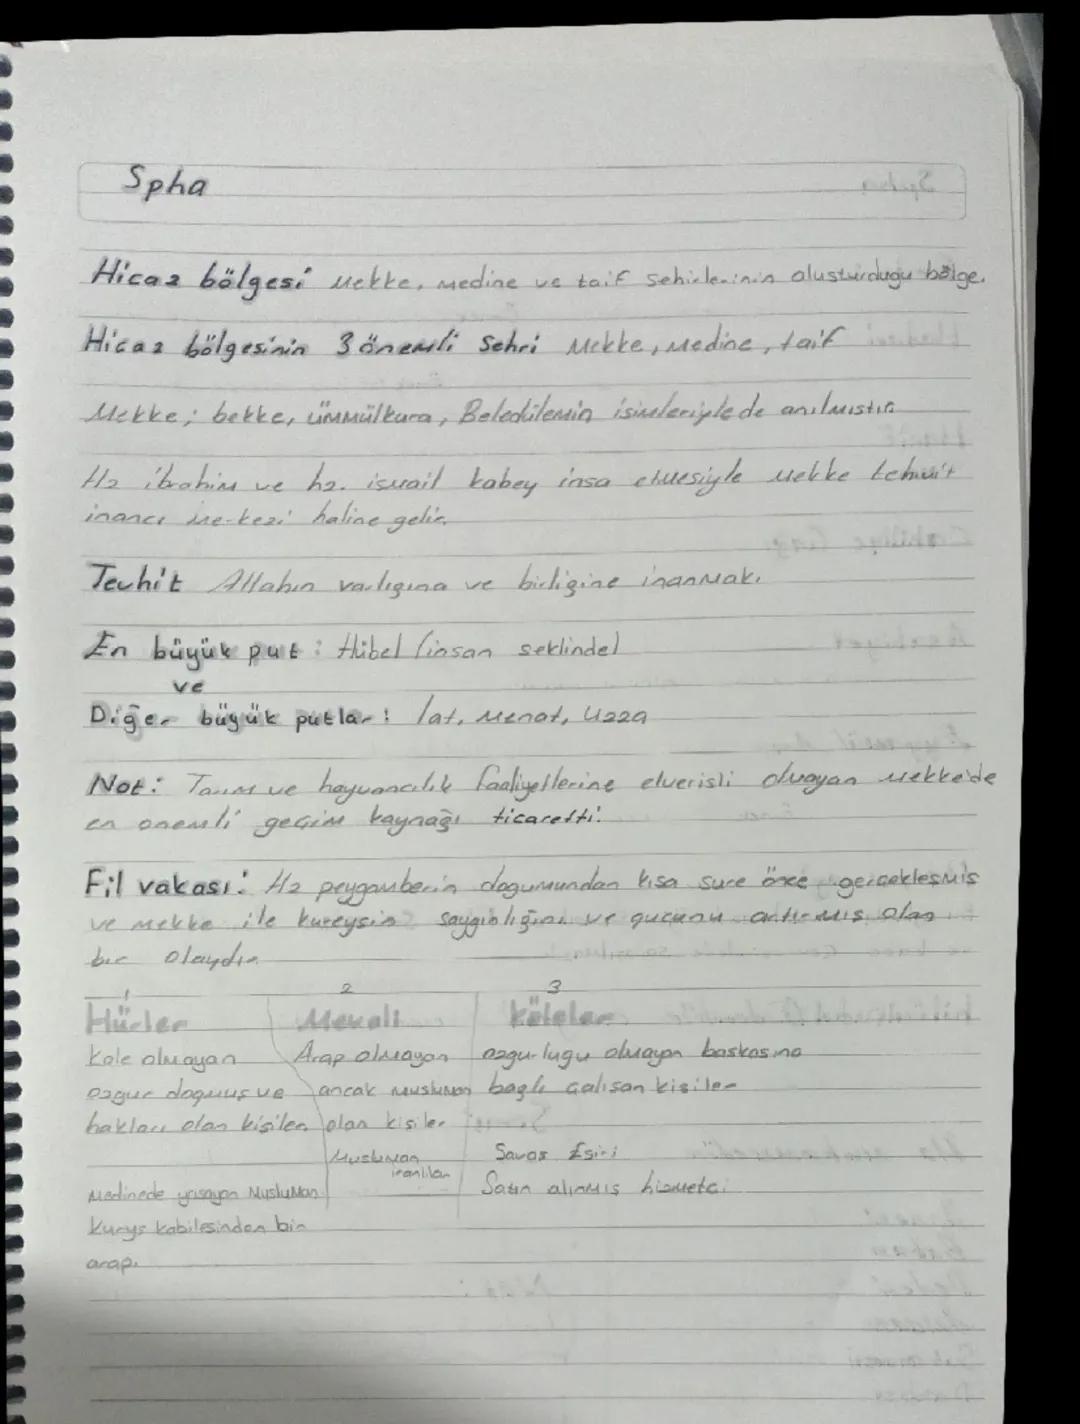 Spha
Hicaz bölgesi Mekke, Medine ve taif sehirlerinin olusturdugu bölge.
Hicaz bölgesinin 3 önemli Sehri Mekke, Medine, taif
Mekke; bekke, ümmülkura, Beledülemin isimleriylede anılmıstır
Hz ibrahim ve hz. ismail kabey insa etmesiyle Mekke tehvit
inancı merkezi haline gelir.
Tevhit Allahın varlıgına ve birligine inanmak.
En büyük put : Hübel (insan seklinde)
ve
Diğer büyük putlar : lat, Menat, Uzza
Not : Tarım ve hayvancılık faaliyetlerine elverisli olmayan Mekke'de
en onemli geçim kaynağı ticaretti.
Fil vakası : Hz peygamberin dogumundan kısa sure önce gerceklesmis
ve mekke ile kureysin saygınlığını ve gucunu artırmıs olan
bir olaydır
1 2 3
Hürler Mevali köleler
Kole olmayan Arap olmayan ozgurlugu olmayan baskasına
ozgur dogmus ve ancak musluman baglı calısan kisiler
hakları olan kisiler olan kisiler
Musluman iranlılar Savas Esiri
Medinede yasayan Musluman Satın alınmıs hizmetci
Kurys kabilesinden bir
arap.